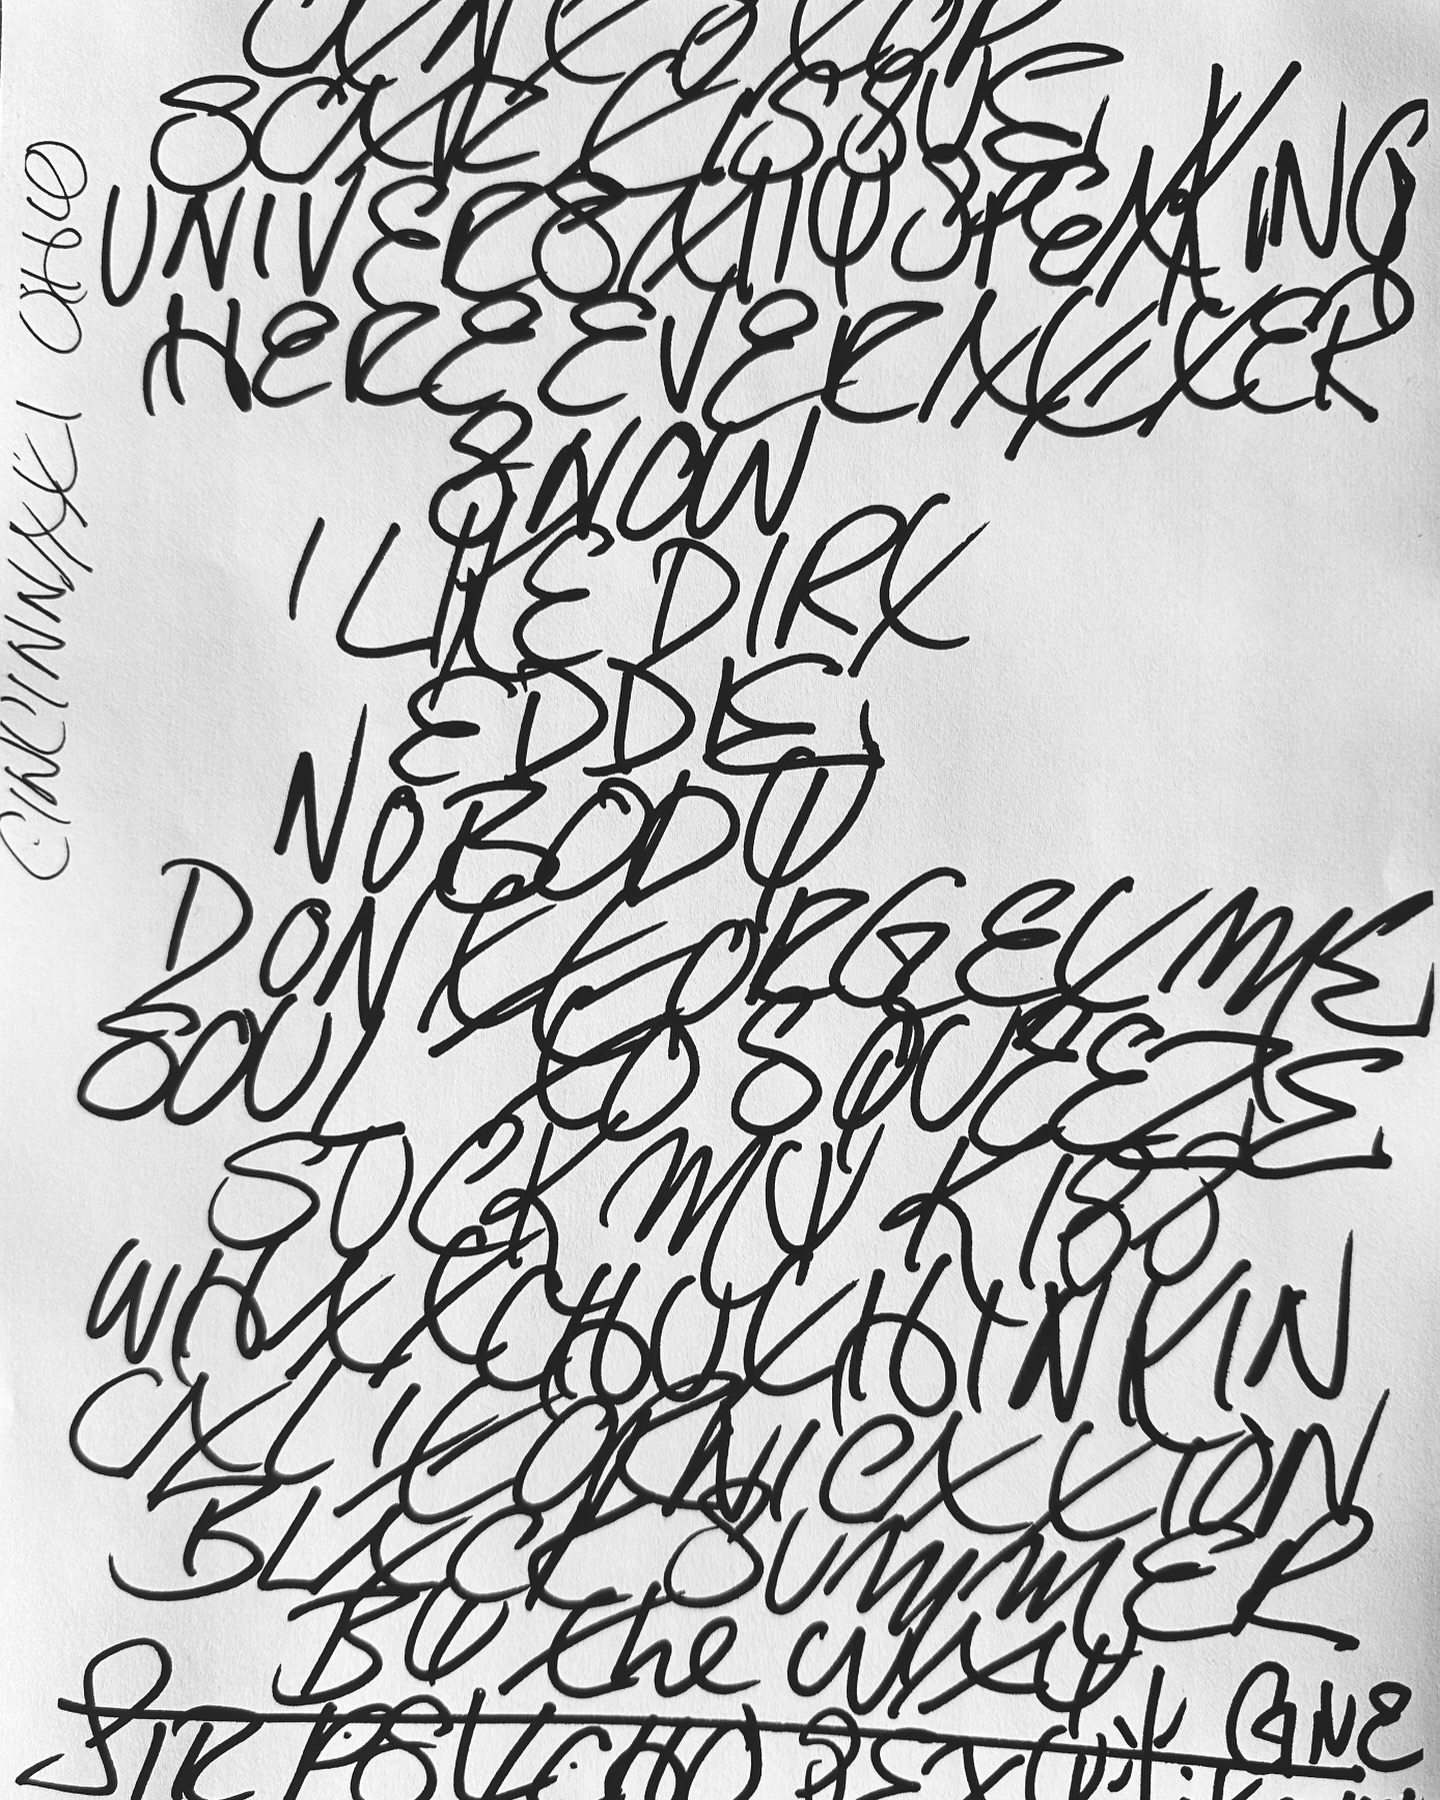 CINCINNATI OHIO
CANT STOP
SCAR TISSUE
UNIVERSALLY SPEAKING
HERE EVER AFTER
SNOW
I LIKE DIRT
EDDIE
NOBODY
DONT FORGET ME
SOUL TO SQUEEZE
SUCK MY KISS
WHATCHU THINKIN
CALIFORNICATION
BLACK SUMMER
BY the WAY
SIR PSYCHO SEXY